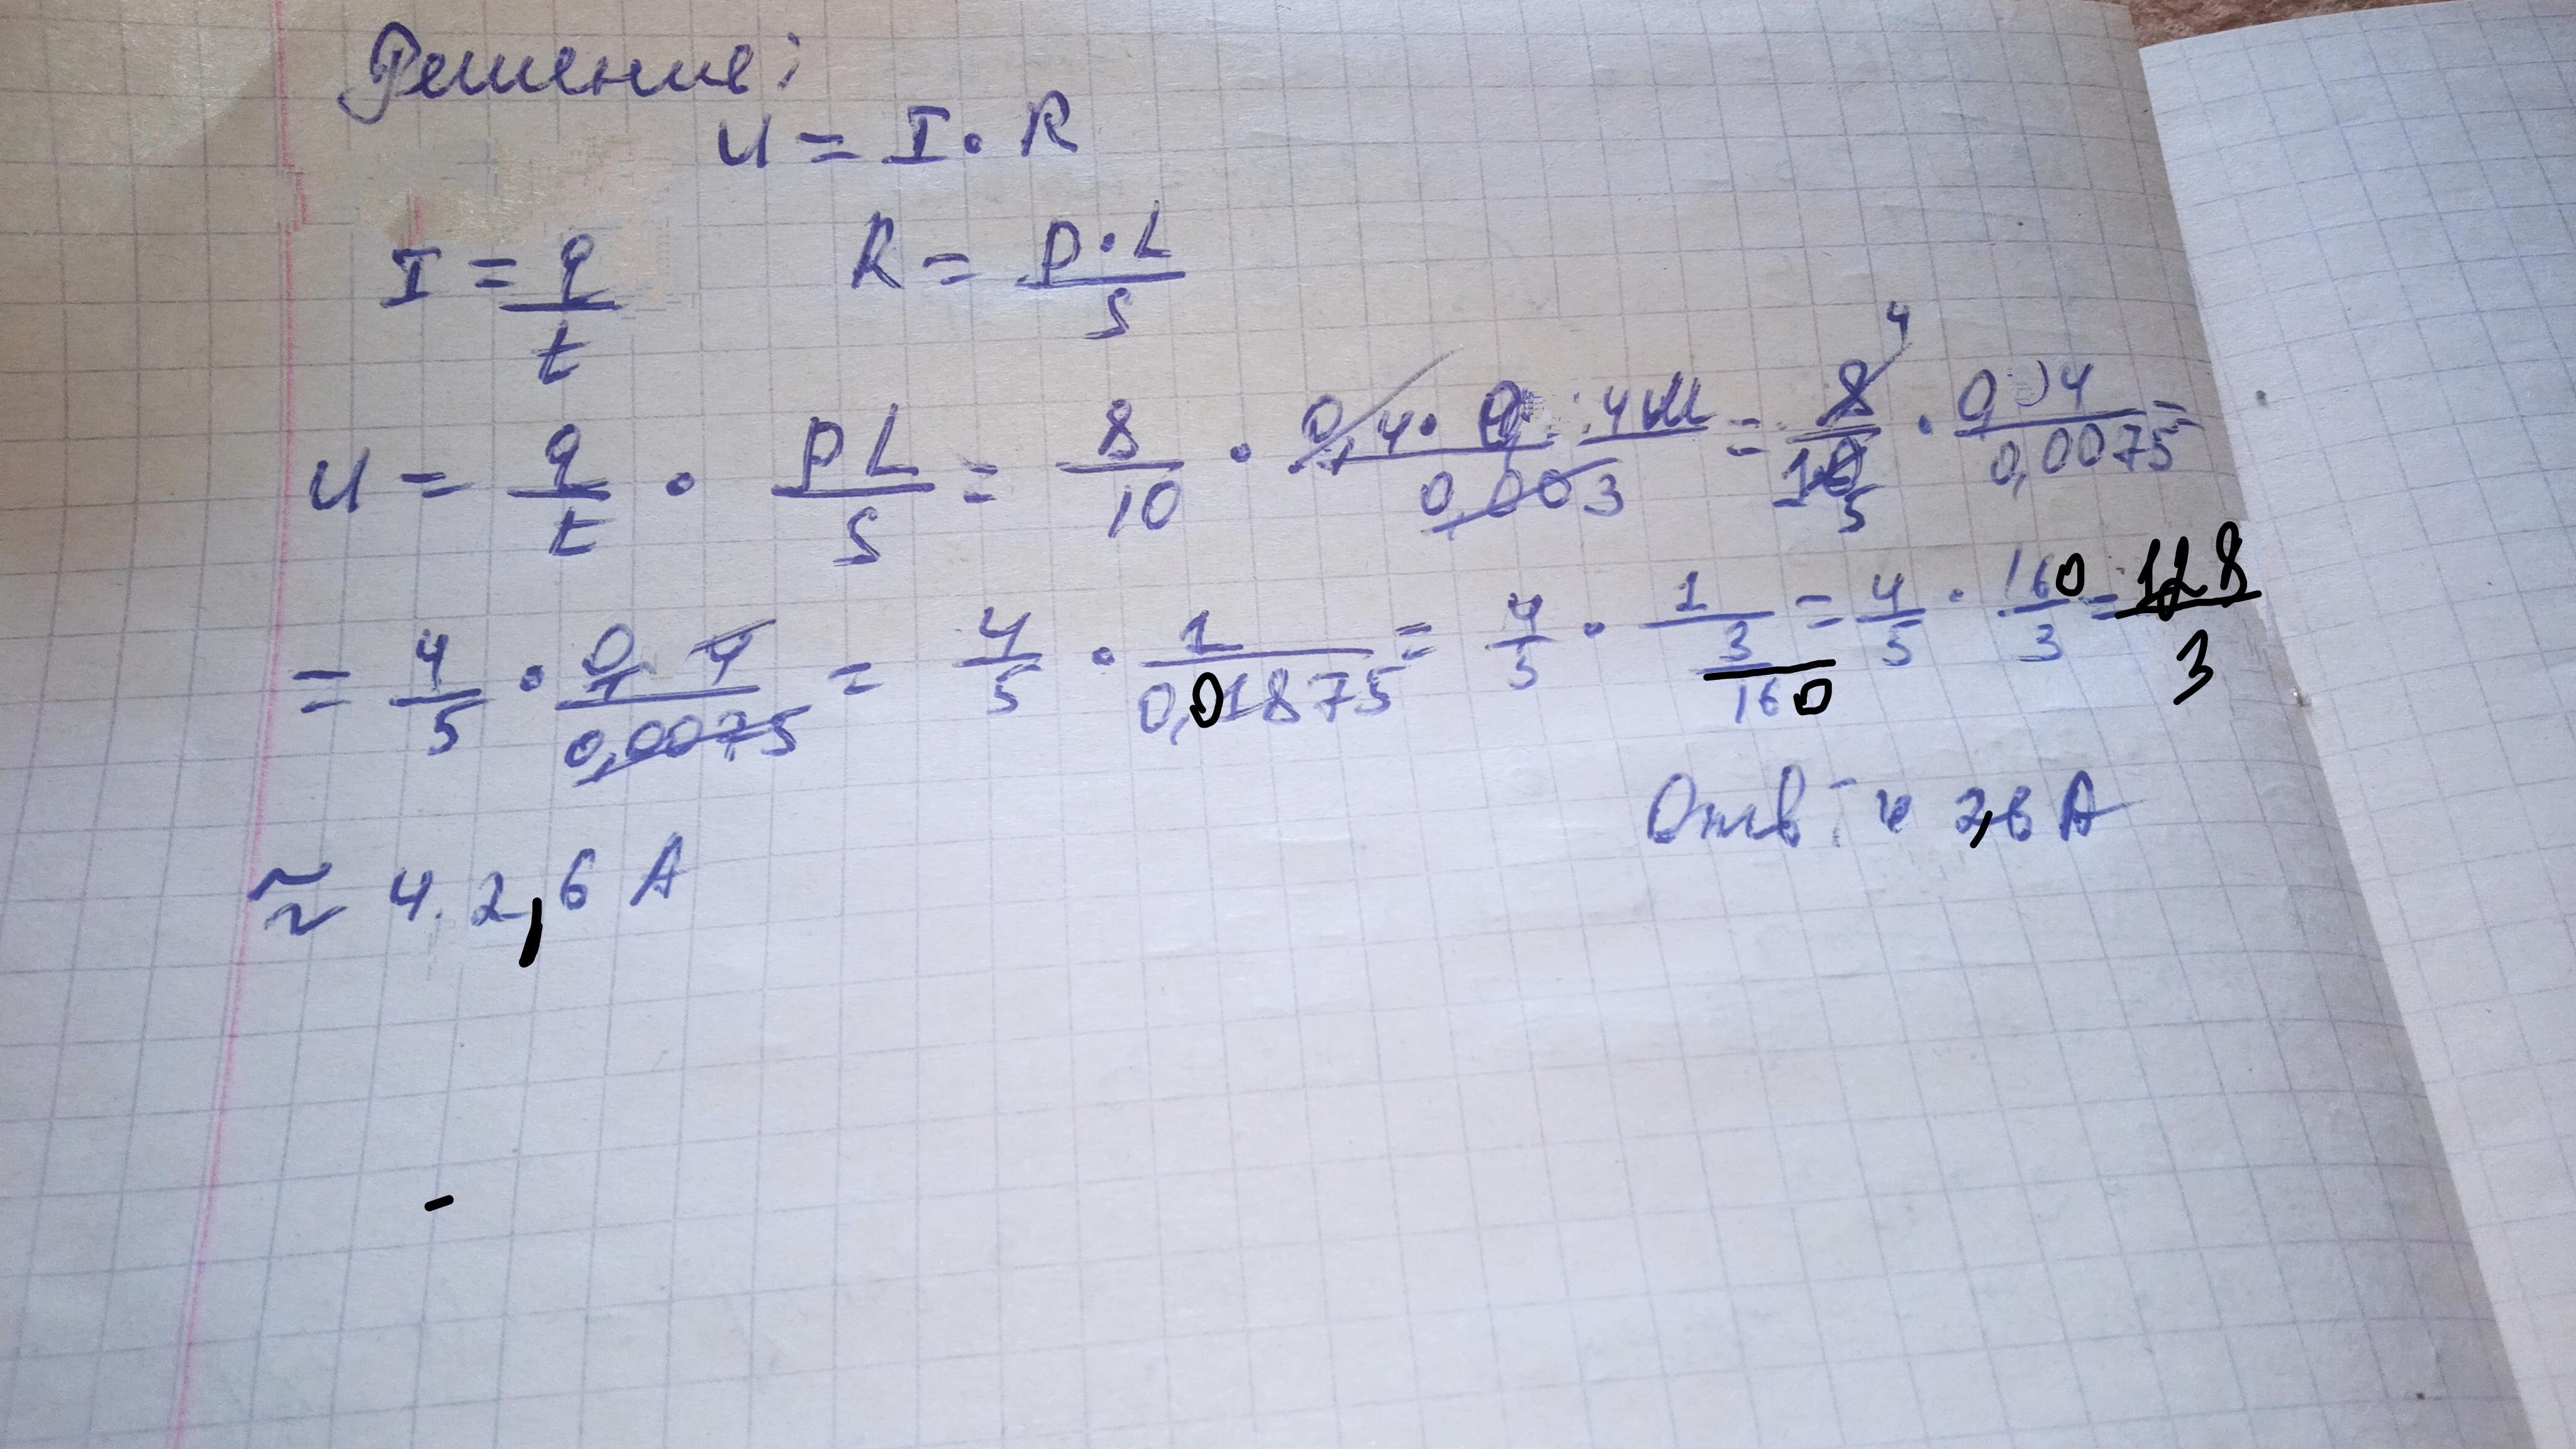 Решение:
U = I · R
I = q/t R = p·L/s
U = q/t · pL/s = 8/10 · 0,4· 0, 4м/0,003 = 8/10 4/5 · 0, 4/0,0075 =
= 4/5 · 0, 4/0,0075 = 4/5 · 1/0,01875 = 4/5 · 1/3/160 = 4/5 · 160/3 = 128/3
≈ 42,6 A
Отв: 42,6 A